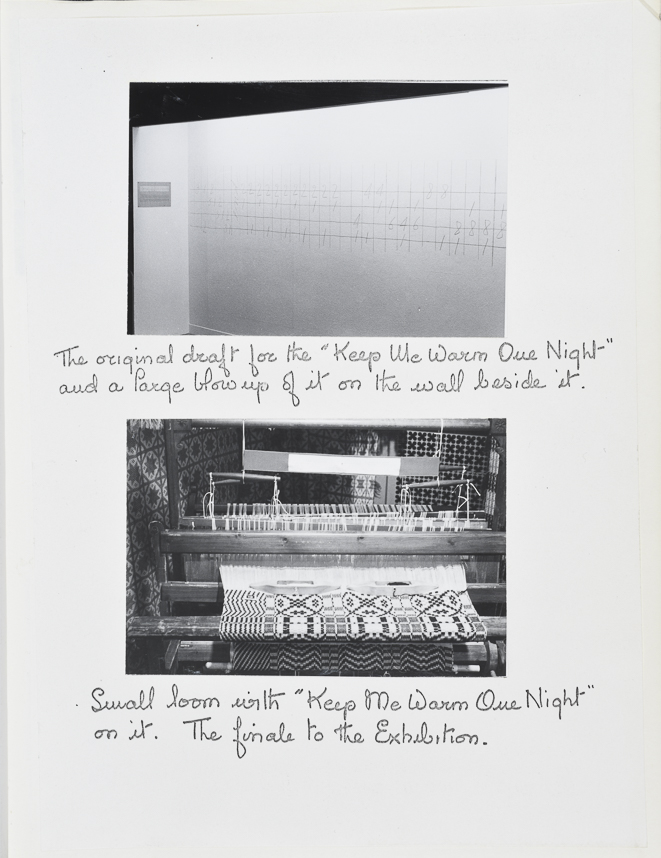 The original draft for the "Keep Me Warm One Night"
and a large blow up of it on the wall beside it.
Small loom with "Keep Me Warm One Night"
on it. The finale to the Exhibition.